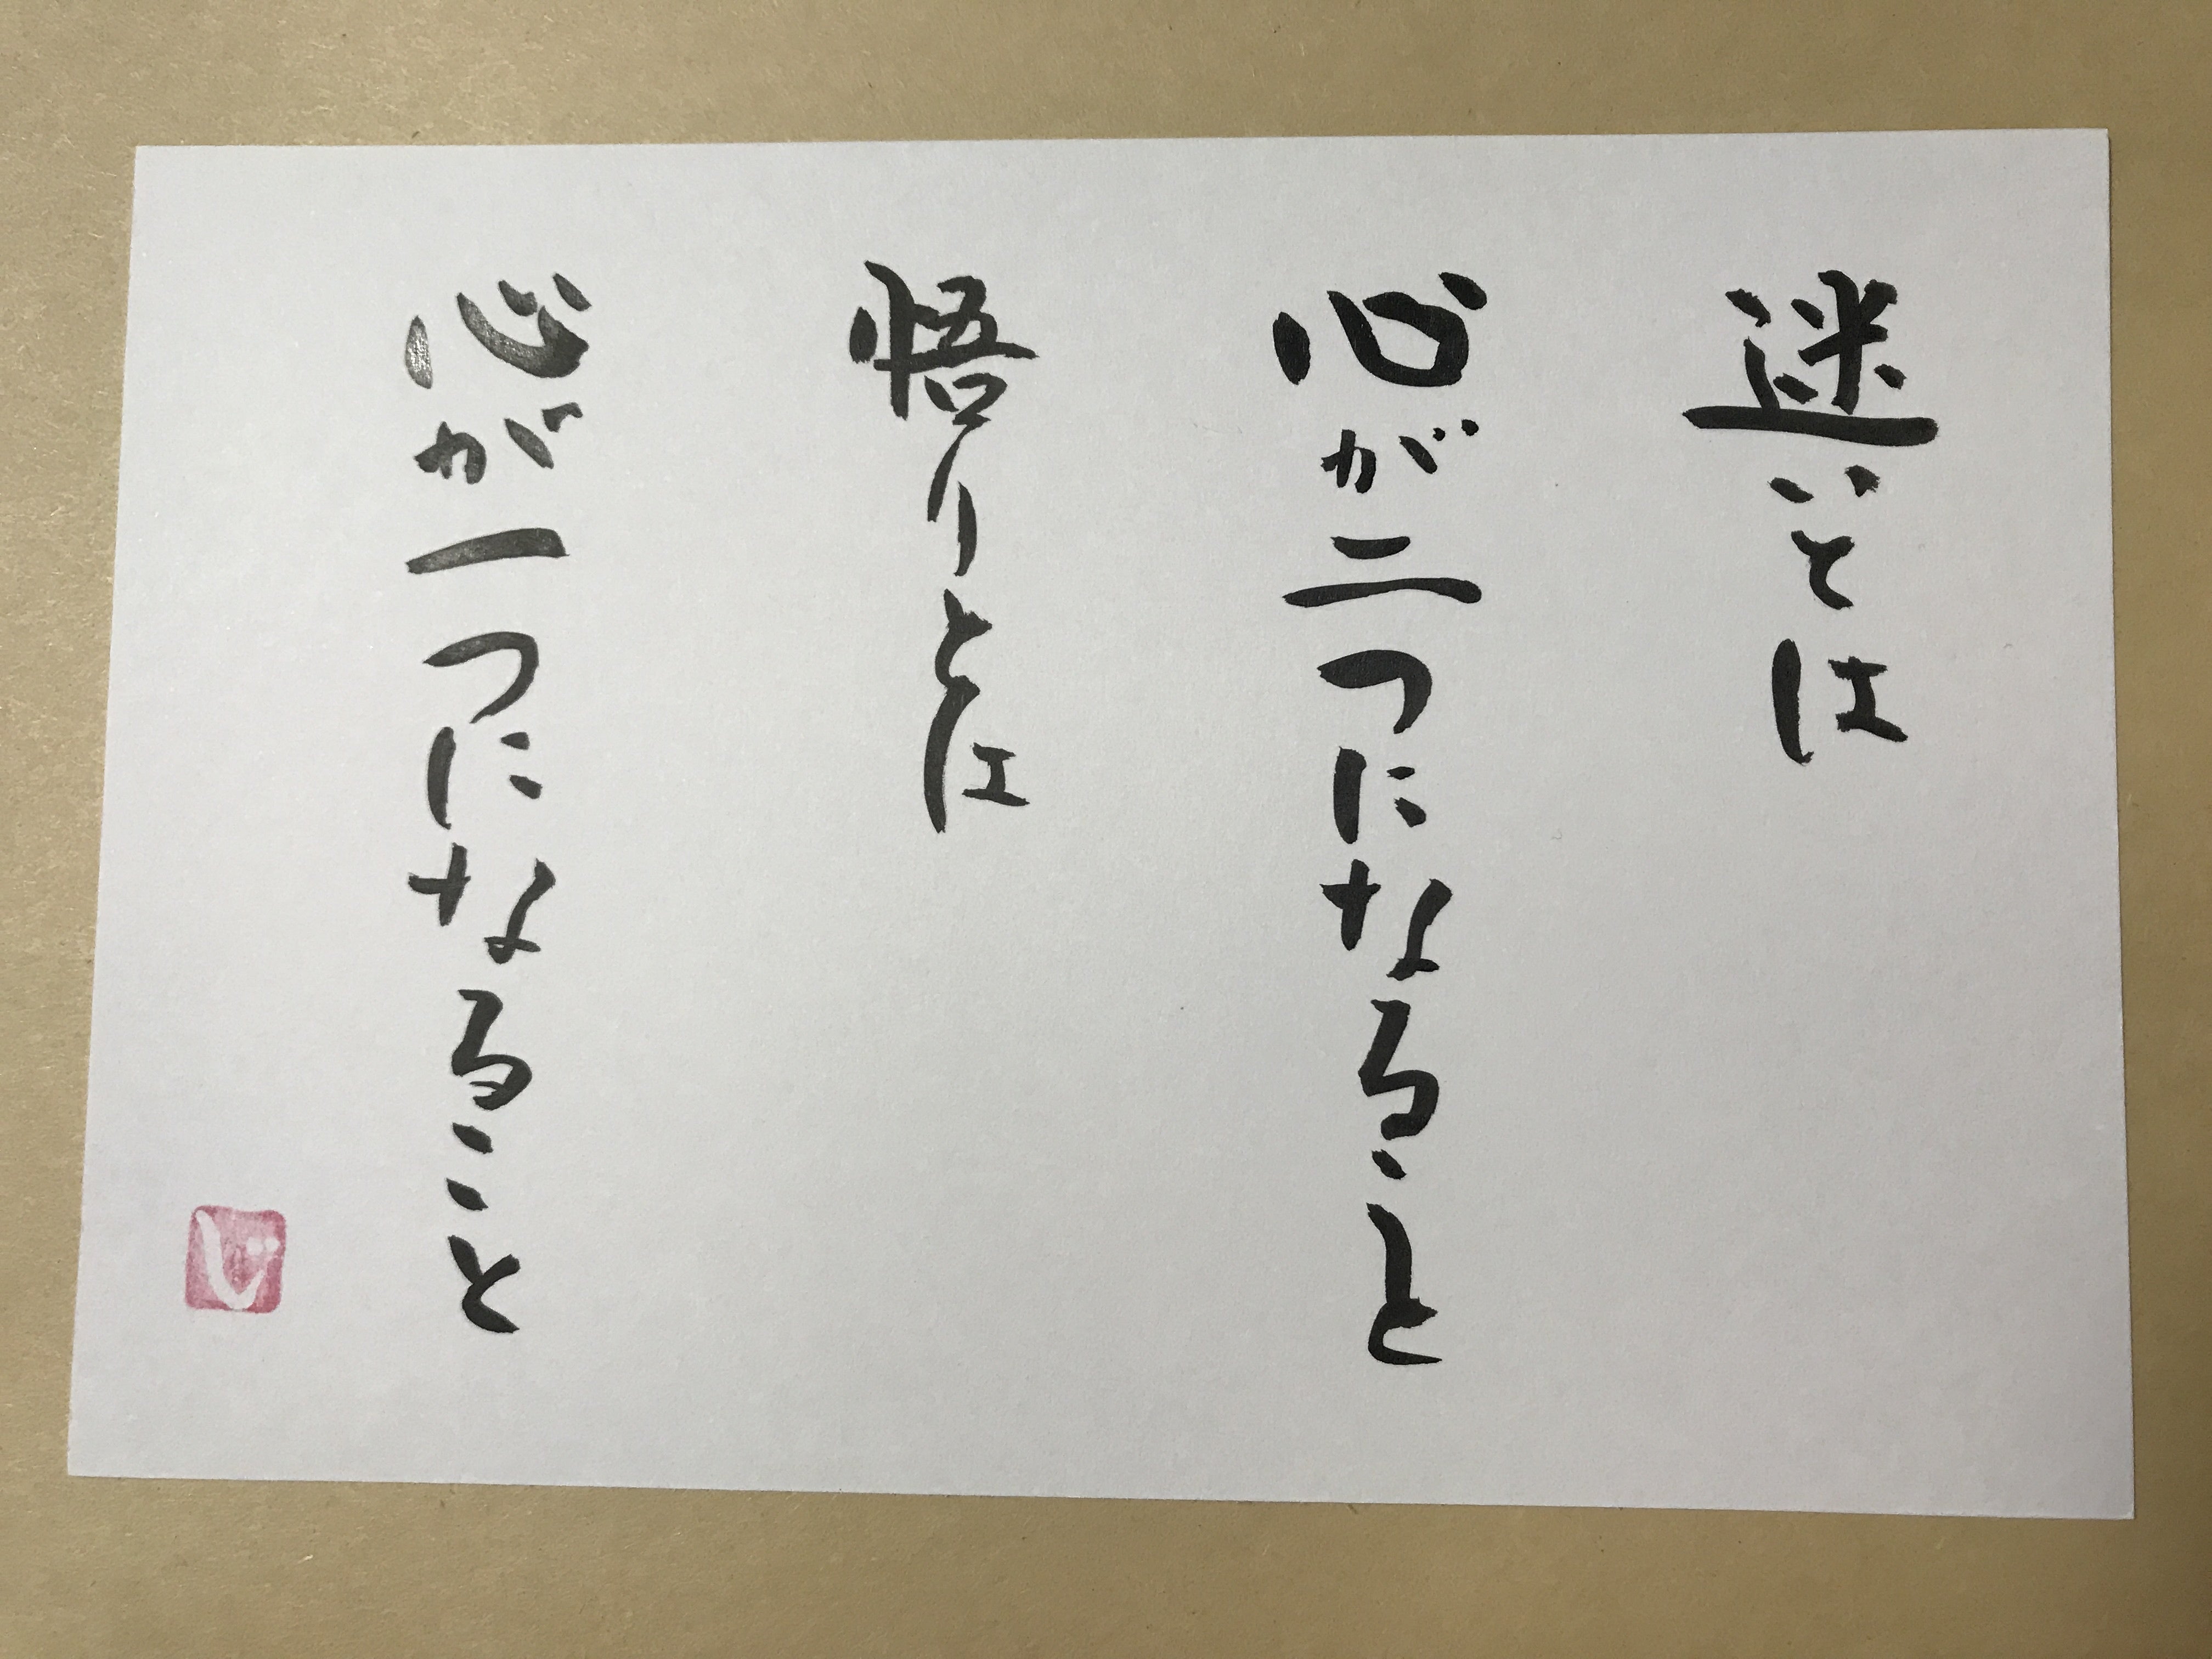 迷いとは
心が二つになること
悟りとは
心が一つになること
じ